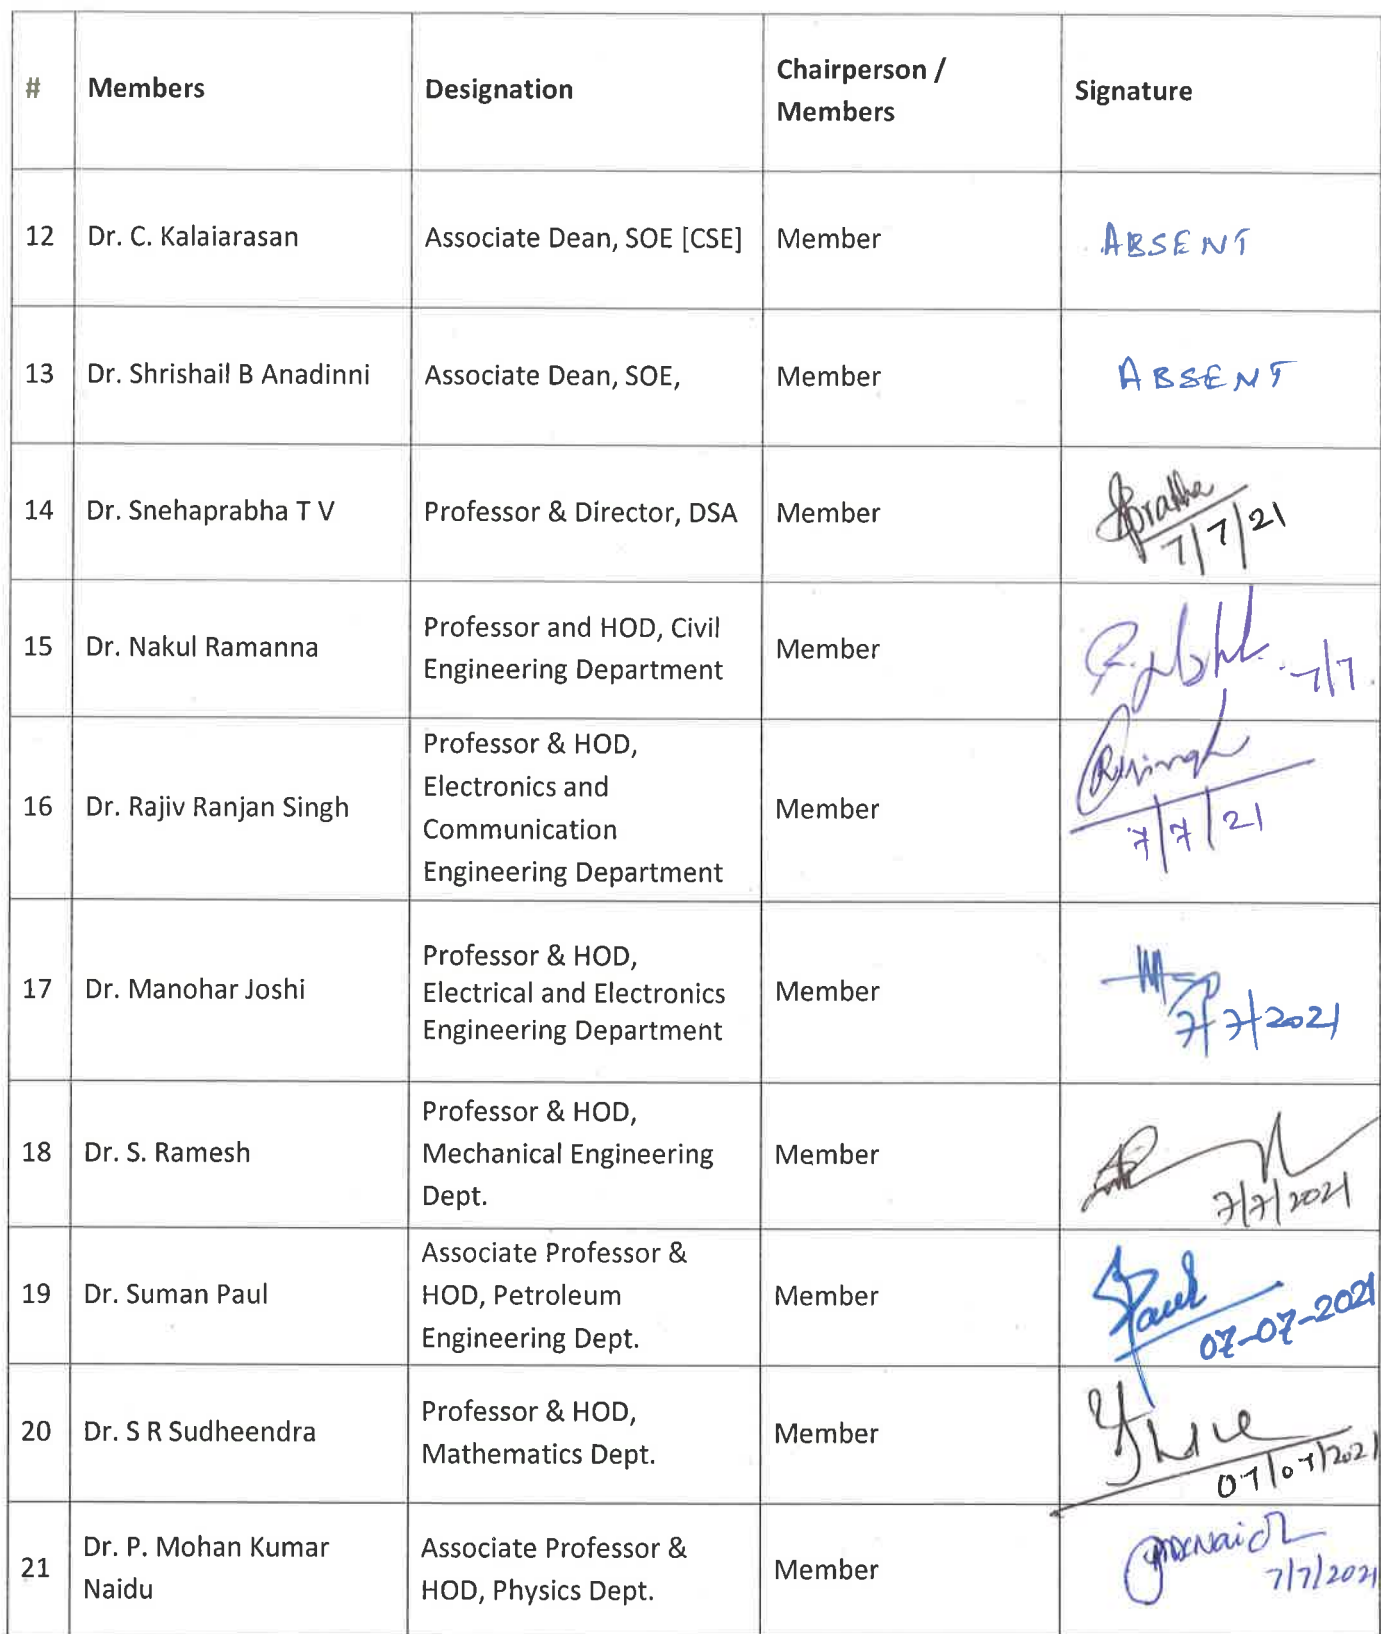 #
Members
Designation
Chairperson /
Members
Signature
12
Dr. C. Kalaiarasan
Associate Dean, SOE [CSE]
Member
ABSENT
13
Dr. Shrishail B Anadinni
Associate Dean, SOE,
Member
ABSENT
14
Dr. Snehaprabha T V
Professor & Director, DSA
Member
7/7/21
15
Dr. Nakul Ramanna
Professor and HOD, Civil
Engineering Department
Member
7/7.
16
Dr. Rajiv Ranjan Singh
Professor & HOD,
Electronics and
Communication
Engineering Department
Member
7/7/21
17
Dr. Manohar Joshi
Professor & HOD,
Electrical and Electronics
Engineering Department
Member
7/7/2021
18
Dr. S. Ramesh
Professor & HOD,
Mechanical Engineering
Dept.
Member
7/7/2021
19
Dr. Suman Paul
Associate Professor &
HOD, Petroleum
Engineering Dept.
Member
Paul
07-07-2021
20
Dr. S R Sudheendra
Professor & HOD,
Mathematics Dept.
Member
07/07/2021
21
Dr. P. Mohan Kumar
Naidu
Associate Professor &
HOD, Physics Dept.
Member
7/7/2021